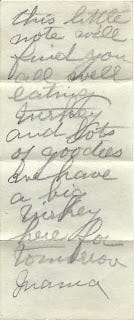 this little
note will
find you
all well
eating
turkey
and lots
of goodees
we have
a big
turkey
here for
tomorrow
Mama